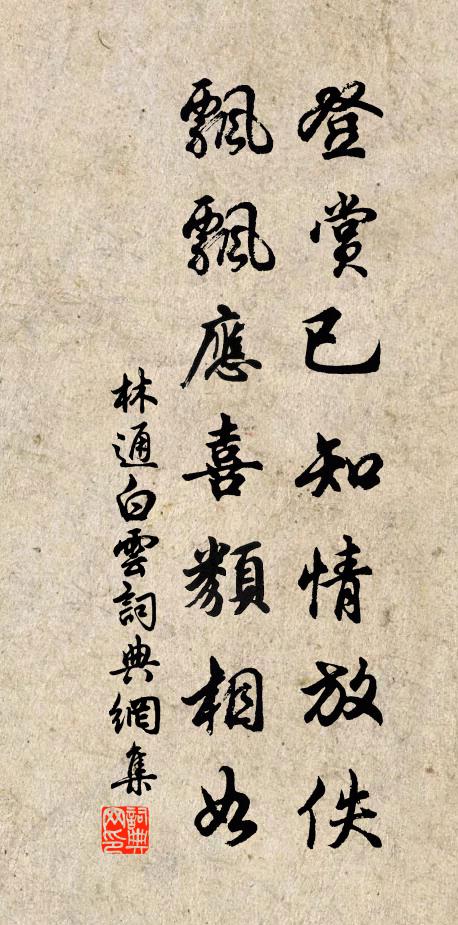 登賞已知情放佚
飄飄應喜類相如
林通白雲詞典網集
詞典
网印